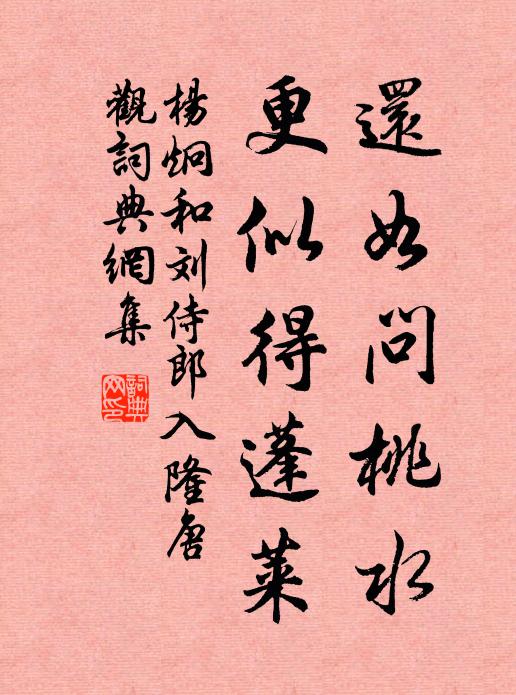 還如問桃水
更似得蓬萊
楊炯和刘侍郎入隆唐
觀詞典網集
詞典
网印